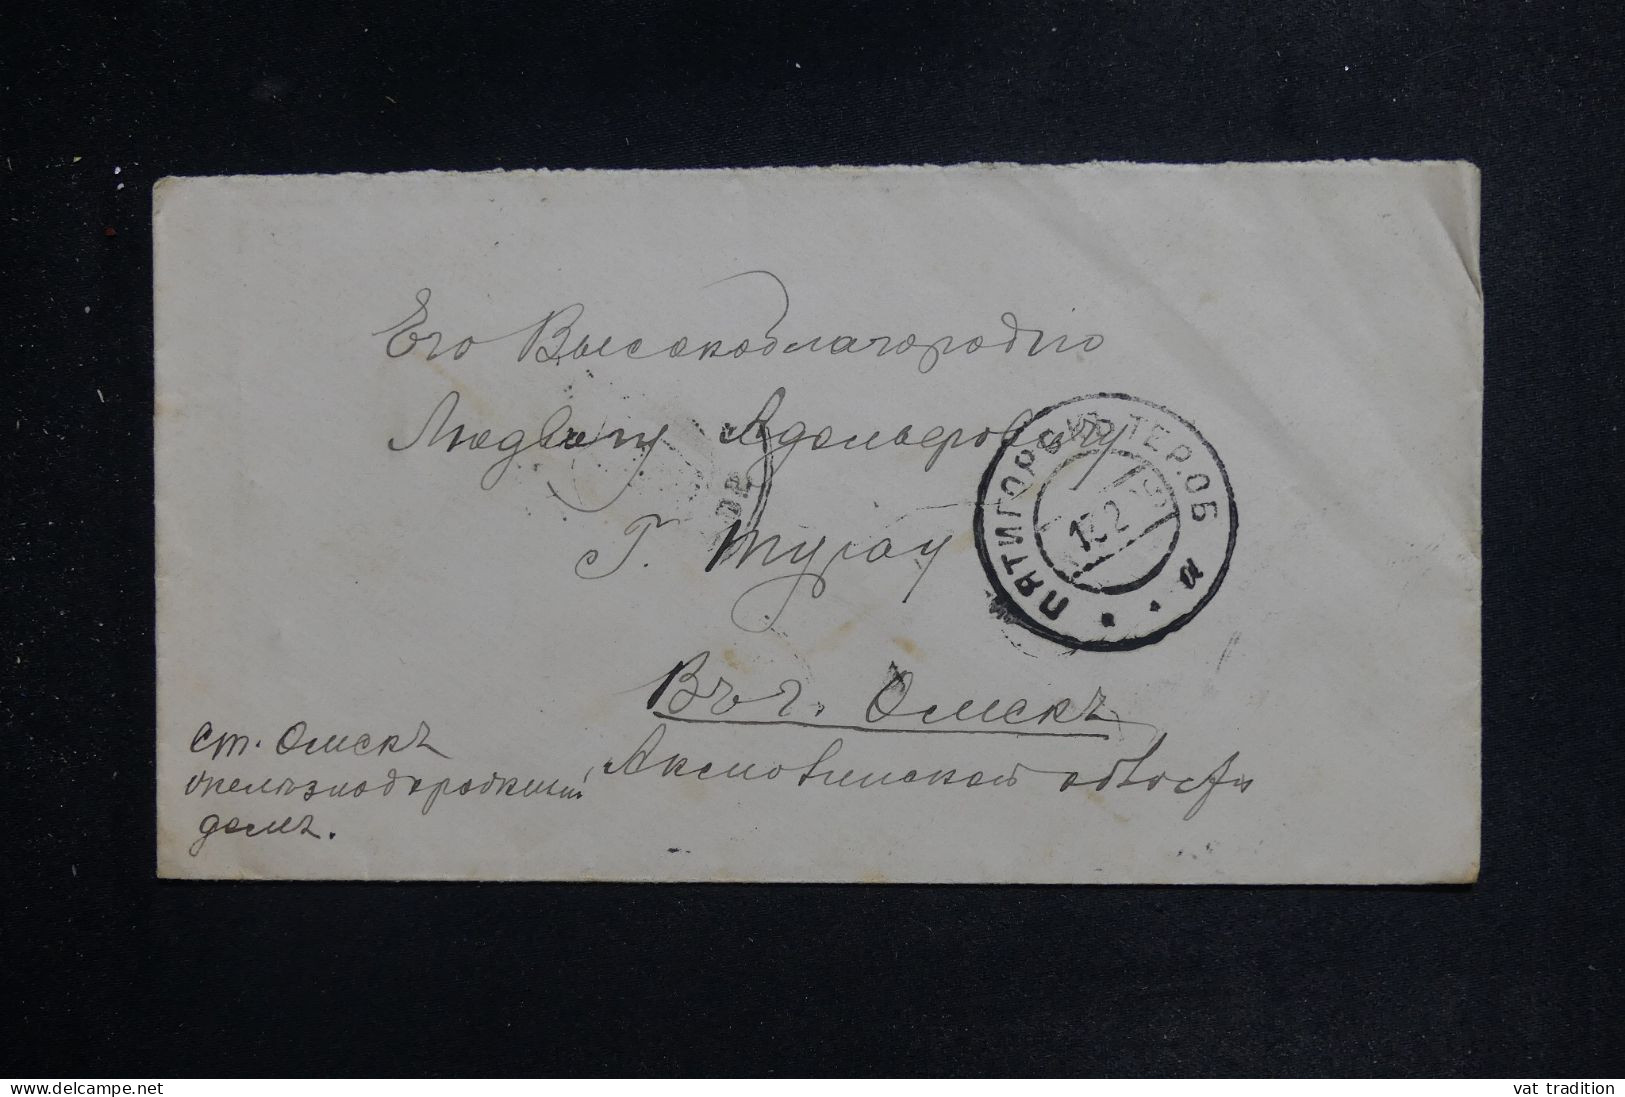 Его Высокоблагородiю
Людвигу Адольфовичу
Г. Тугау
Въ г. Омскъ
Акмолинской области
ст. Омскъ
железнодорожный
домъ.
ПЯТИГОРСКЪ ТЕР. ОБ.
а
www.delcampe.net
vat tradition